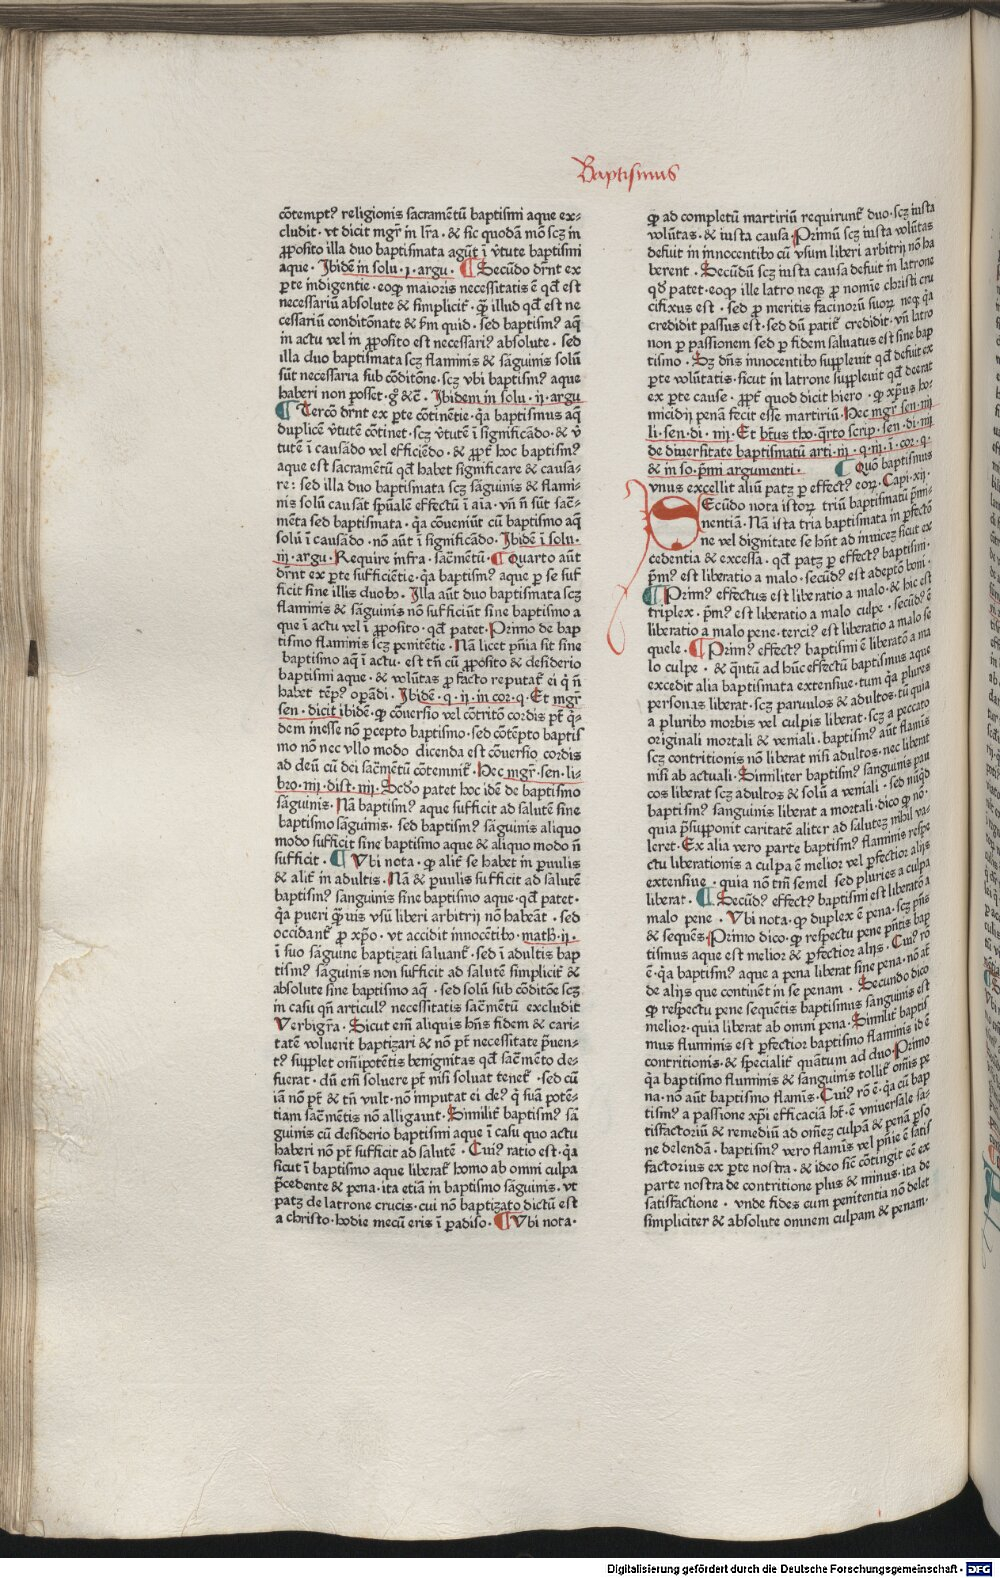 Baptismus
cõtempt⁹ religionis sacramẽtũ baptismi aque ex-
cludit · vt dicit mgr̃ in lr̃a · & sic quodã mõ scʒ in
ꝓposito illa duo baptismata agũt ĩ v̾tute baptismi
aque · Ibidẽ in solu · 1 · argu · ¶ Secũdo dr̃nt ex
ꝑte indigentie · eoꝙ maioris necessitatis ẽ qđ est
necessariũ absolute & simplicit̃ · ꝗ̃ illud qđ est ne
cessariũ conditõnate & ẜm quid · sed baptism⁹ aq̃
in actu vel in ꝓposito est necessari⁹ absolute · sed
illa duo baptismata scʒ flaminis & sãguinis solũ
sũt necessaria sub cõditõne · scʒ vbi baptism⁹ aque
haberi non posset · gͦ &c̃ · Ibidem in solu · ij · argu
¶ Tercõ dr̃nt ex ꝑte cõtinẽtie · q̃a baptismus aq̃
duplicẽ v̾tutẽ cõtinet · scʒ v̾tutẽ ĩ significãdo · & v̾
tutẽ ĩ causãdo vel efficiẽdo · & ꝓpt̃ hoc baptism⁹
aque est sacramẽtũ qđ habet significare & causa-
re : sed illa duo baptismata scʒ sãguinis & flami-
nis solũ causãt sp̃ualẽ effectũ ĩ aĩa · vñ ñ sũt sac̃-
mẽta sed baptismata · q̃a cõueniũt cũ baptismo aq̃
solũ ĩ causãdo · nõ aũt ĩ significãdo · Ibidẽ ĩ solu ·
iij · argu · Require infra · sac̃mẽtũ · ¶ Quarto aũt
dr̃nt ex ꝑte sufficiẽtie · q̃a baptism⁹ aque ꝑ se suf
ficit sine illis duobꝰ · Illa aũt duo baptismata scʒ
flaminis & sãguinis nõ sufficiũt sine baptismo a
que ĩ actu vel ĩ ꝓposito · qđ patet · Primo de bap
tismo flaminis scʒ penitẽtie · Nã licet pñia sit sine
baptismo aq̃ ĩ actu · est tñ cũ ꝓposito & desiderio
baptismi aque · & volũtas ꝑ facto reputat̃ ei q̃ ñ
habet tẽp⁹ oꝑãdi · Ibidẽ · q · ij · in cor · q · Et mgr̃
sen · dicit ibidẽ · ꝙ cõuersio vel cõtritõ cordis pt̃ q̃-
dem inesse nõ ꝑcepto baptismo · sed cõtẽpto baptis
mo nõ nec vllo modo dicenda est cõuersio cordis
ad deũ cũ dei sac̃mẽtũ cõtemnit̃ · Hec mgr̃ · sen · li-
bro · iiij · dist · iiij · Scđo patet hoc idẽ de baptismo
sãguinis · Nã baptism⁹ aque sufficit ad salutẽ sine
baptismo sãguinis · sed baptism⁹ sãguinis aliquo
modo sufficit sine baptismo aque & aliquo modo ñ
sufficit · ¶ Vbi nota · ꝙ alit̃ se habet in ꝑuulis
& alit̃ in adultis · Nã & ꝑuulis sufficit ad salutẽ
baptism⁹ sanguinis sine baptismo aque · qđ patet ·
q̃a pueri ꝗ̃uis vsũ liberi arbitrij nõ habeãt · sed
occidant̃ ꝓ xp̃o · vt accidit innocẽtibꝰ · math · ij ·
ĩ suo sãguine baptizati saluant̃ · sed ĩ adultis bap
tism⁹ sãguinis non sufficit ad salutẽ simplicit̃ &
absolute sine baptismo aq̃ · sed solũ sub cõditõe scʒ
in casu qñ articul⁹ necessitatis sac̃mẽtũ excludit
Verbigr̃a · Sicut em̃ aliquis hñs fidem & cari-
tatẽ voluerit baptizari & nõ pt̃ necessitate p̃uen-
t⁹ supplet om̃ipotẽtis benignitas qđ sac̃mẽto de-
fuerat · dũ em̃ soluere pt̃ nisi soluat tenet̃ · sed cũ
iã nõ pt̃ & tñ vult · nõ imputat ei de⁹ q̃ suã potẽ-
tiam sac̃mẽtis nõ alligauit · Similit̃ baptism⁹ sã
guinis cũ desiderio baptismi aque ĩ casu quo actu
haberi nõ pt̃ sufficit ad salutẽ · Cui⁹ ratio est · q̃a
sicut ĩ baptismo aque liberat̃ homo ab omni culpa
p̃cedente & pena · ita etiã in baptismo sãguinis · vt
patʒ de latrone crucis · cui nõ baptizato dictũ est
a christo · hodie mecũ eris ĩ ꝑadiso · ¶ Vbi nota ·
ꝙ ad completũ martiriũ requirunt̃ duo · scʒ iusta
volũtas · & iusta causa · Primũ scʒ iusta volũtas
defuit in innocentibꝰ cũ vsum liberi arbitrij nõ ha
berent · Secũdũ scʒ iusta causa defuit in latrone
qđ patet · eoꝙ ille latro neqꝫ ꝓ nomie christi cru
cifixus est · sed ꝓ meritis facinorũ suoꝝ neqꝫ q̃a
credidit passus est · sed dũ patit̃ credidit · vñ latro
non ꝑ passionem sed ꝑ fidem saluatus est sine bap
tismo · Sʒ dñs innocentibꝰ suppleuit qđ defuit ex
ꝑte volũtatis · sicut in latrone suppleuit qđ deerat
ex ꝑte cause · ꝓpt̃ quod dicit hiero · ꝙ xp̃us ho-
micidij penã fecit esse martiriũ · Hec mgr̃ sen · iiij
li · sen · di · iiij · Et bt̃us tho · q̃rto scrip · sen · di · iiij
de diuersitate baptismatũ arti · iij · q · iij · ĩ · cor · q ·
& in so · p̃mi argumenti · ¶ Quõ baptismus
vnus excellit aliũ patʒ ꝑ effect⁹ eoꝝ · Capi · xij ·
SEcũdo nota istoꝝ triũ baptismatũ p̃mi-
nentiã · Nã ista tria baptismata in ꝑfectõ
ne vel dignitate se hñt ad inuicẽ sicut ex
cedentia & excessa · qđ patʒ ꝑ effect⁹ baptismi ·
p̃m⁹ est liberatio a malo · secũd⁹ est adeptõ boni ·
¶ Prim⁹ effectus est liberatio a malo · & hic est
triplex · p̃m⁹ est liberatio a malo culpe · secũd⁹ ẽ
liberatio a malo pene · terci⁹ est liberatio a malo se
quele · ¶ Prim⁹ effect⁹ baptismi ẽ liberatõ a ma
lo culpe · & q̃ntũ ad hũc effectũ baptismus aque
excedit alia baptismata extensiue · tum q̃a plures
personas liberat · scʒ paruulos & adultos · tũ quia
a pluribꝰ morbis vel culpis liberat · scʒ a peccato
originali mortali & veniali · baptism⁹ aũt flamĩs
scʒ contritionis nõ liberat nisi adultos · nec liberat
nisi ab actuali · Similiter baptism⁹ sanguinis pau
cos liberat scʒ adultos & solũ a veniali · sed nũqđ
baptism⁹ sanguinis liberat a mortali · dico ꝙ nõ ·
quia p̃supponit caritatẽ aliter ad salutẽ nihil va-
leret · Ex alia vero parte baptism⁹ flaminis respe
ctu liberationis a culpa ẽ melior vel ꝑfectior alijs
extensiue · quia nõ tm̃ semel sed pluries a culpa
liberat · ¶ Secũd⁹ effect⁹ baptismi est liberatõ a
malo pene · Vbi nota · ꝙ duplex ẽ pena · scʒ pñs
& sequẽs · Primo dico · ꝙ respectu pene pñtis bap
tismus aque est melior & ꝑfectior alijs · Cui⁹ rõ
ẽ · q̃a baptism⁹ aque a pena liberat sine pena · nõ aũt
de alijs que continẽt in se penam · Secundo dico
ꝙ respectu pene sequẽtis baptismus sanguinis est
melior · quia liberat ab omni pena · Similit̃ baptis
mus fluminis est ꝑfectior baptismo flaminis id ẽ
contritionis · & specialit̃ quãtum ad duo · Primo
q̃a baptismo fluminis & sanguinis tollit̃ om̃is pe
na · nõ aũt baptismo flamĩs · Cui⁹ rõ ẽ · q̃a cũ bap
tism⁹ a passione xp̃i efficaciã ht̃ · ẽ vniuersale sa-
tisfactoriũ & remediũ ad om̃eʒ culpã & penã ꝓso
ne delendã · baptism⁹ vero flamĩs vel pñie ẽ satis
factorius ex ꝑte nostra · & ideo sic̃ cõtingit eẽ ex
parte nostra de contritione plus & minus · ita de
satisfactione · vnde fides cum penitentia nõ delet
simpliciter & absolute omnem culpam & penam ·
Digitalisierung gefördert durch die Deutsche Forschungsgemeinschaft - DFG